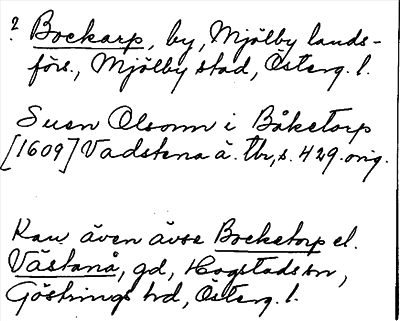 ? Bockarp, by, Mjölby lands-
förs., Mjölby stad, Österg. l.
Suen Olsonn i Båketorp
[1609] Vadstena ä. tbr, s. 429. orig.
Kan även avse Bocketorp el.
Västanå, gd, Hogstads sn,
Göstrings hd, Österg. l.